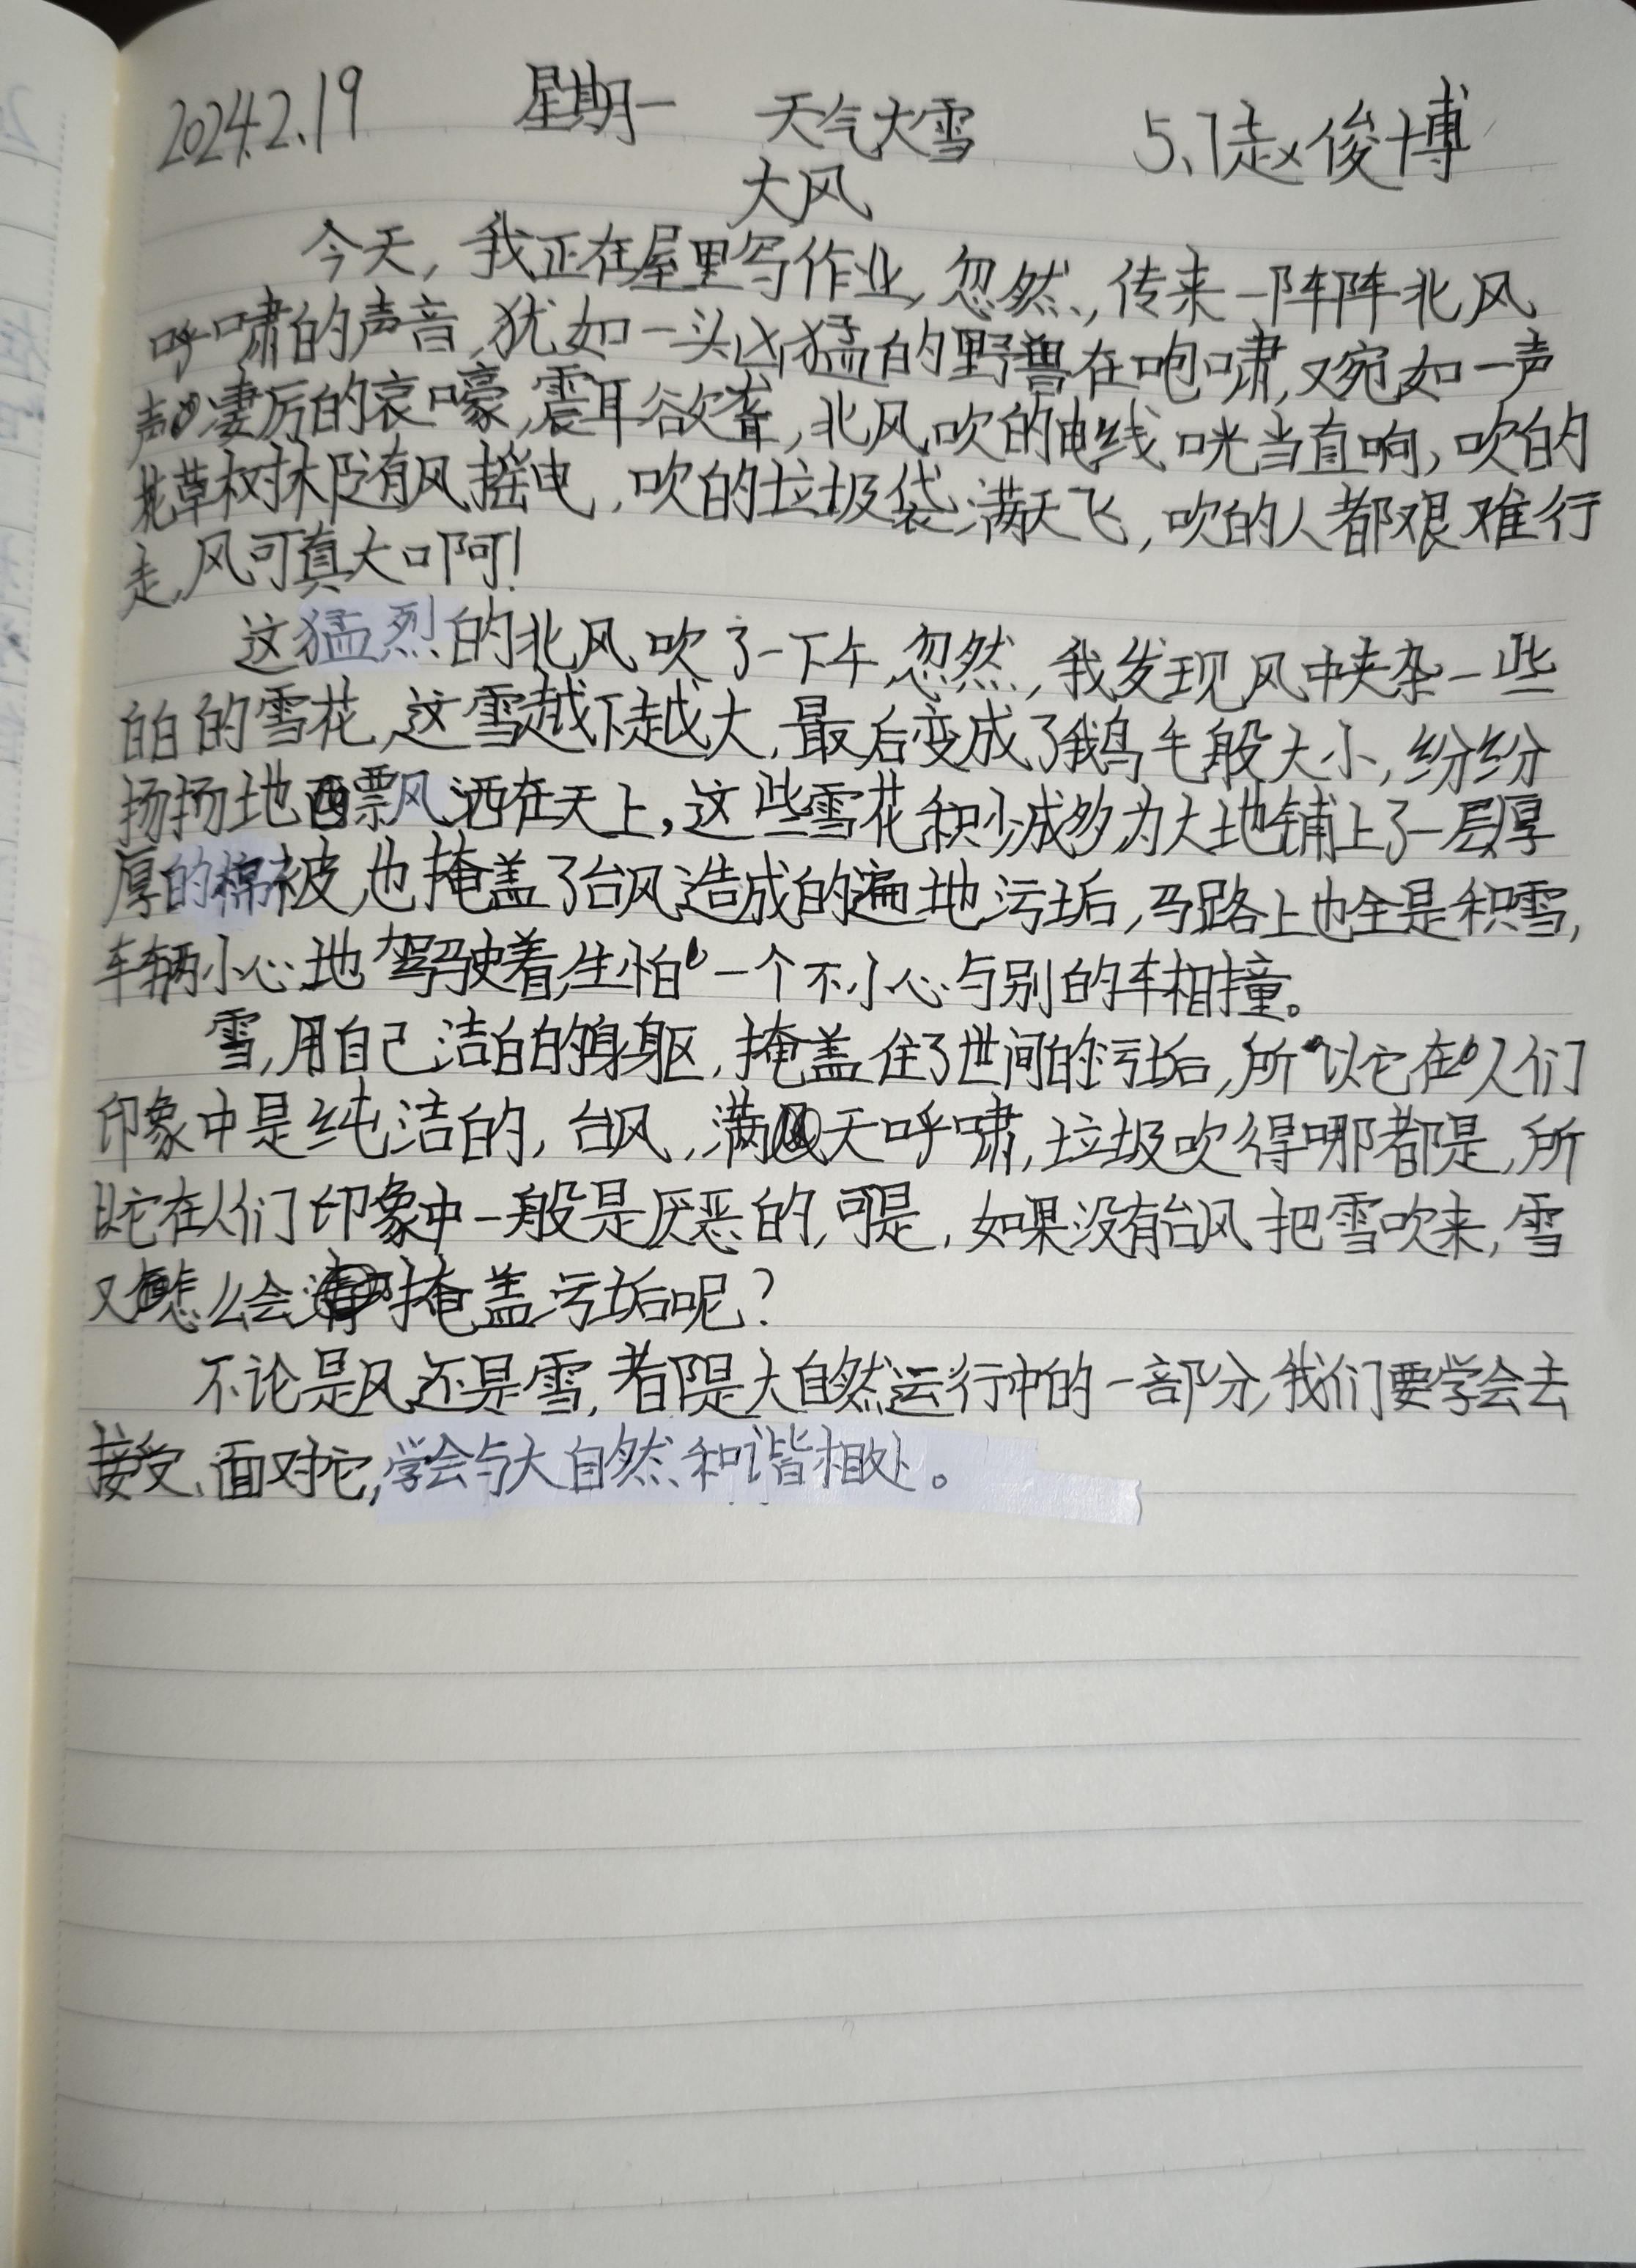 2024.2.19 星期一 天气大雪 5.1赵俊博
大风
今天，我正在屋里写作业，忽然，传来一阵阵北风
呼啸的声音，犹如一头凶猛的野兽在咆啸，又宛如一声
声凄厉的哀嚎，震耳欲聋，北风吹的电线咣当直响，吹的
花草树林随风摇曳，吹的垃圾袋满天飞，吹的人都艰难行
走，风可真大啊！
这猛烈的北风吹了一下午，忽然，我发现风中夹杂一些
白白的雪花，这雪越下越大，最后变成了鹅毛般大小，纷纷
扬扬地飘洒在天上，这些雪花积少成多为大地铺上了一层厚
厚的棉被，也掩盖了台风造成的遍地污垢，马路上也全是积雪，
车辆小心地驾驶着，生怕一个不小心与别的车相撞。
雪，用自己洁白的身躯，掩盖住了世间的污垢，所以它在人们
印象中是纯洁的，台风，满天呼啸，垃圾吹得哪都是，所
以它在人们印象中一般是厌恶的，可是，如果没有台风把雪吹来，雪
又怎么会掩盖污垢呢？
不论是风还是雪，都是大自然运行中的一部分，我们要学会去
接受、面对它，学会与大自然和谐相处。